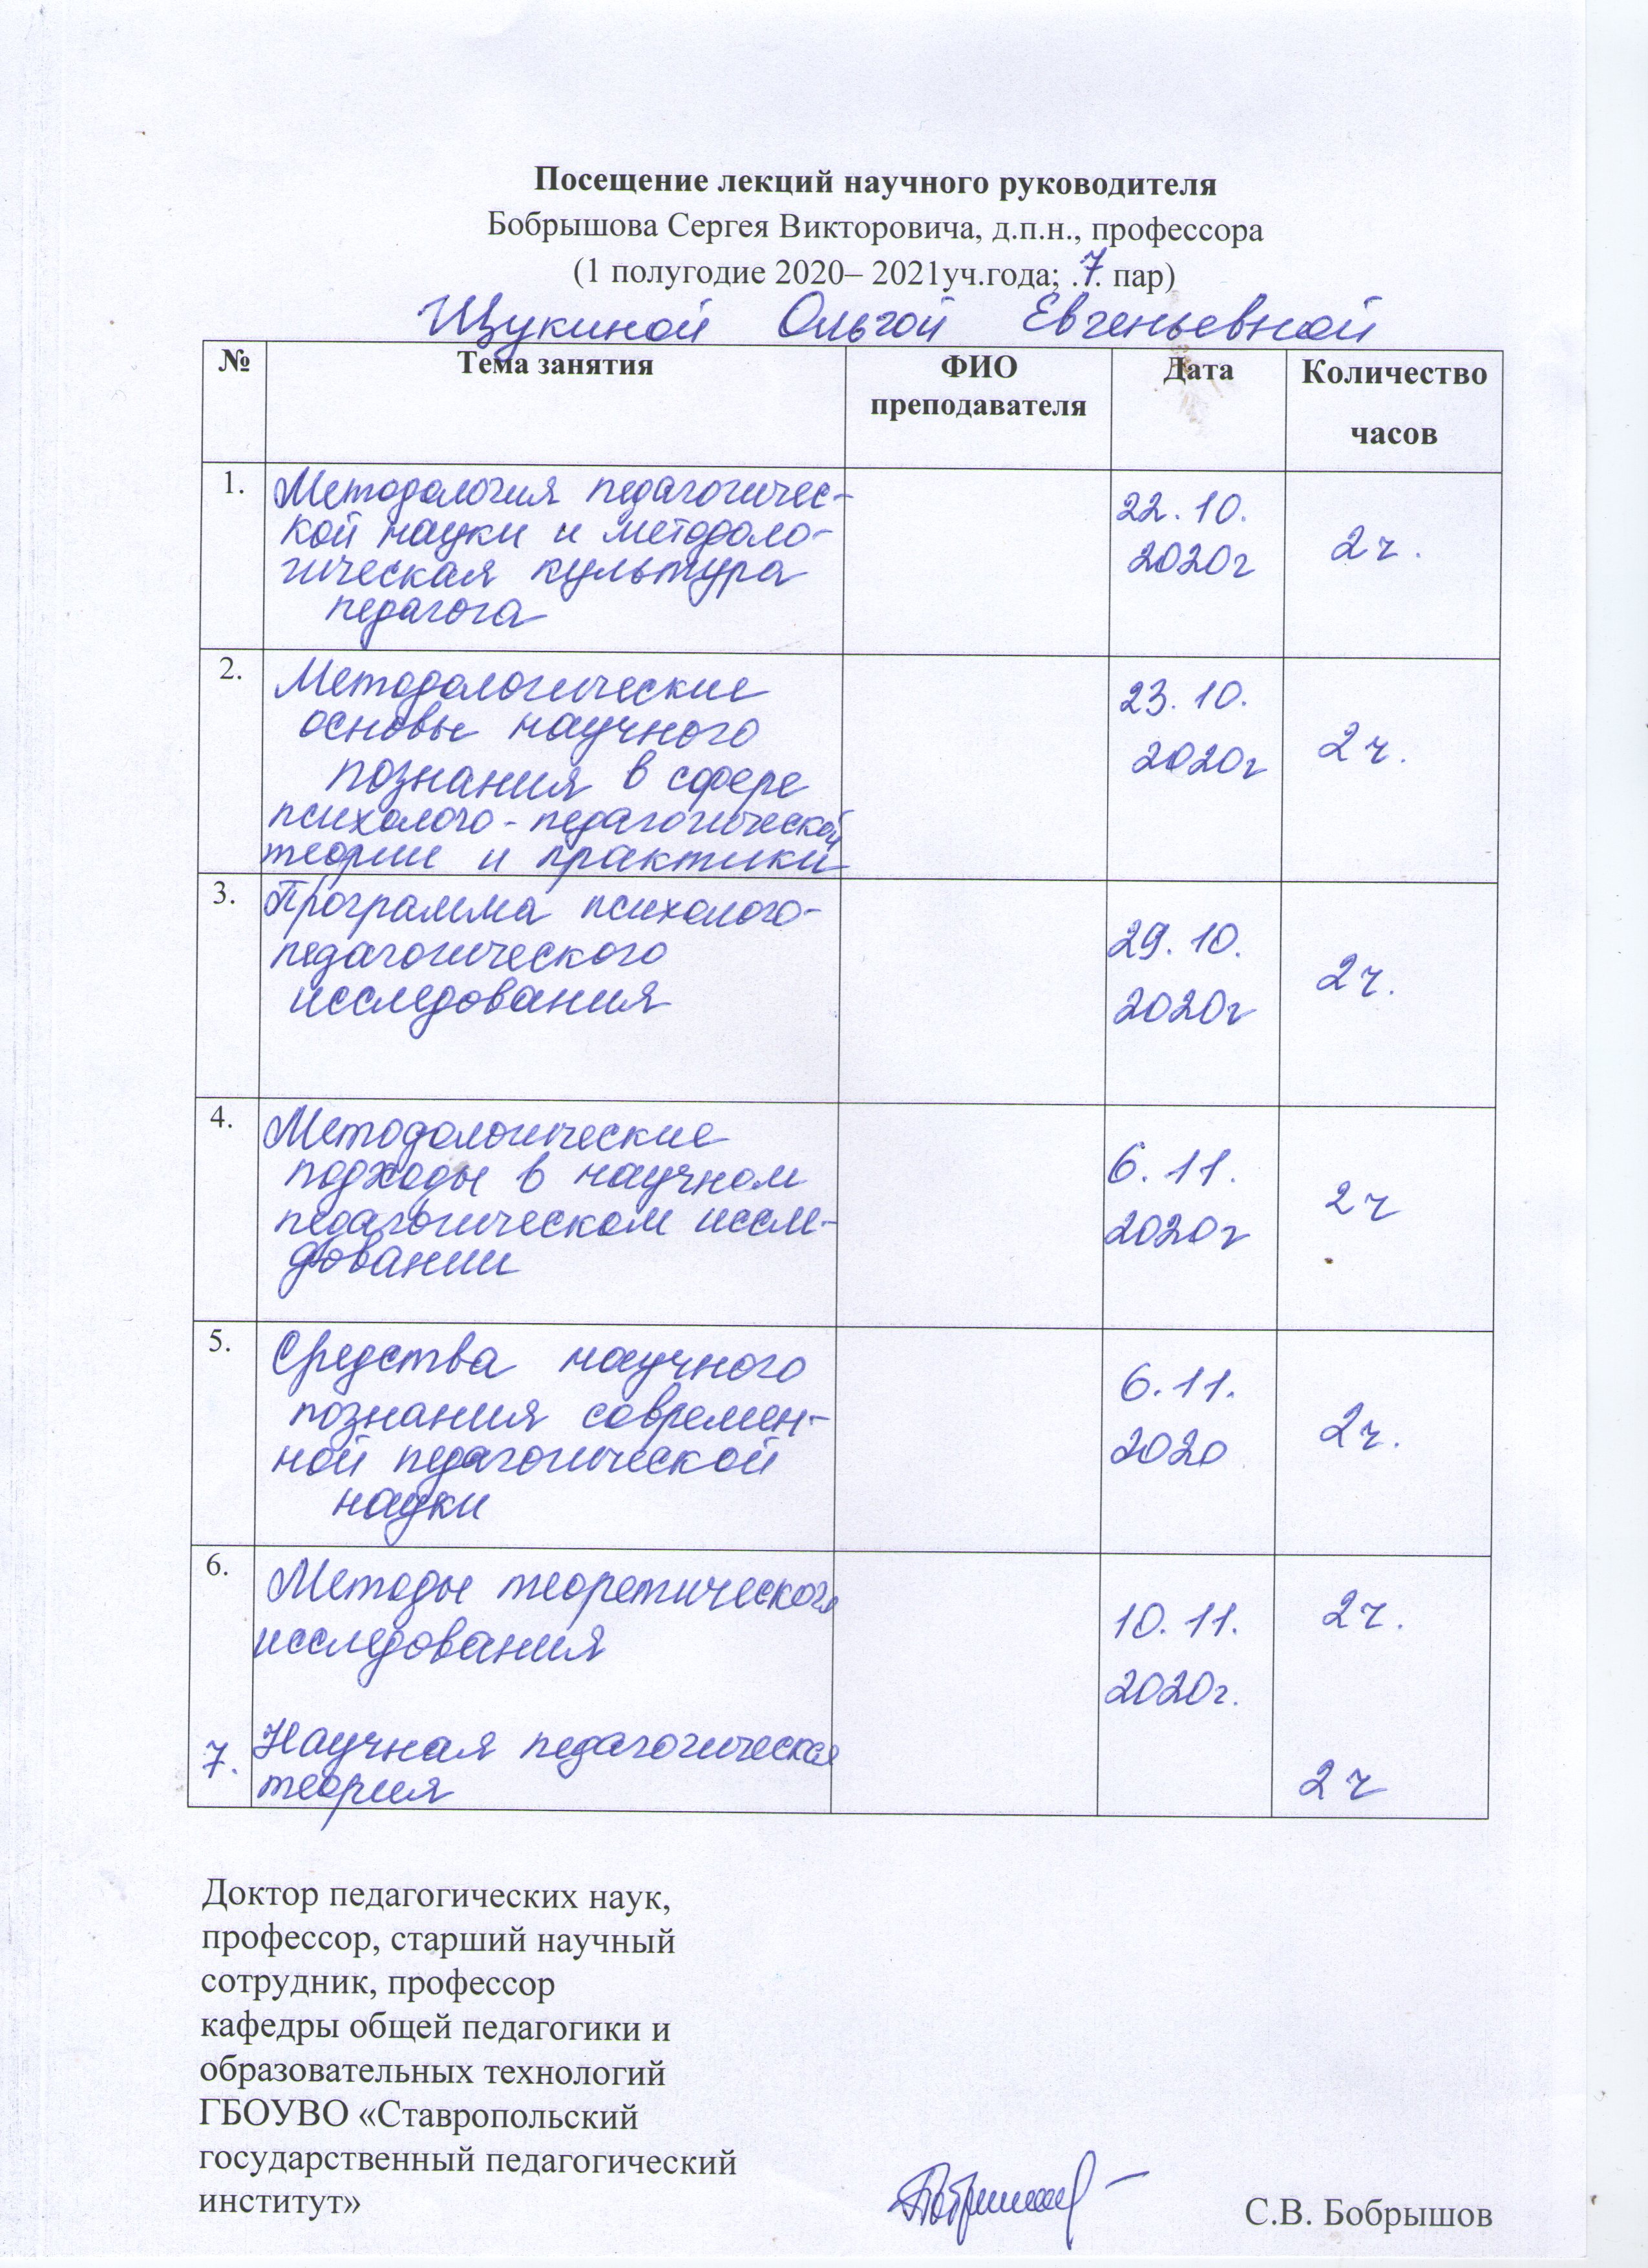 Посещение лекций научного руководителя
Бобрышова Сергея Викторовича, д.п.н., профессора
(1 полугодие 2020– 2021уч.года; .7. пар)
Щукиной Ольгой Евгеньевной
№ Тема занятия ФИО Дата Количество
преподавателя часов
1. Методология педагогичес-
кой науки и методоло- 22.10.
гическая культура 2020г 2ч.
педагога
2. Методологические 23.10.
основы научного
познания в сфере 2020г 2ч.
психолого-педагогической
теории и практики
3. Программа психолого-
педагогического 29.10.
исследования 2020г 2ч.
4. Методологические
подходы в научном 6.11.
педагогическом иссле- 2020г 2ч
довании
5. Средства научного
познания современ- 6.11.
ной педагогической 2020 2ч.
науки
6. Методы теоретического 10.11. 2ч.
исследования 2020г.
7. Научная педагогическая
теория 2ч
Доктор педагогических наук,
профессор, старший научный
сотрудник, профессор
кафедры общей педагогики и
образовательных технологий
ГБОУВО «Ставропольский
государственный педагогический
институт» С.В. Бобрышов